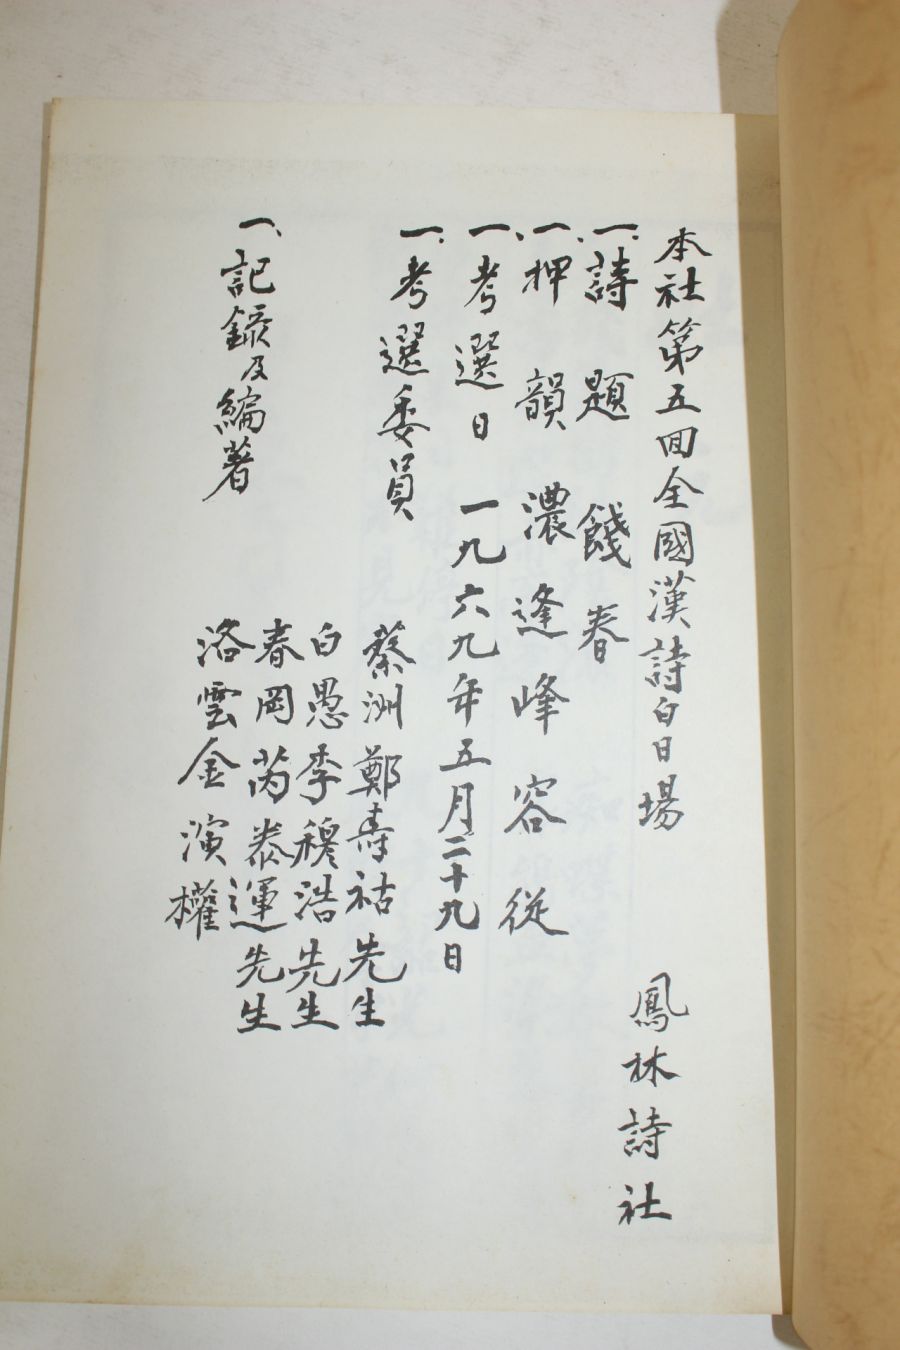 本社第五回全國漢詩白日場 鳳林詩社
一. 詩題 餞春
一. 押韻 濃逢峰容從
一、考選日 一九六九年五月二十九日
一. 考選委員 蔡洲鄭壽祜先生
白愚李穆浩先生
春岡芮泰運先生
一、記錄及編著 洛雲金演權